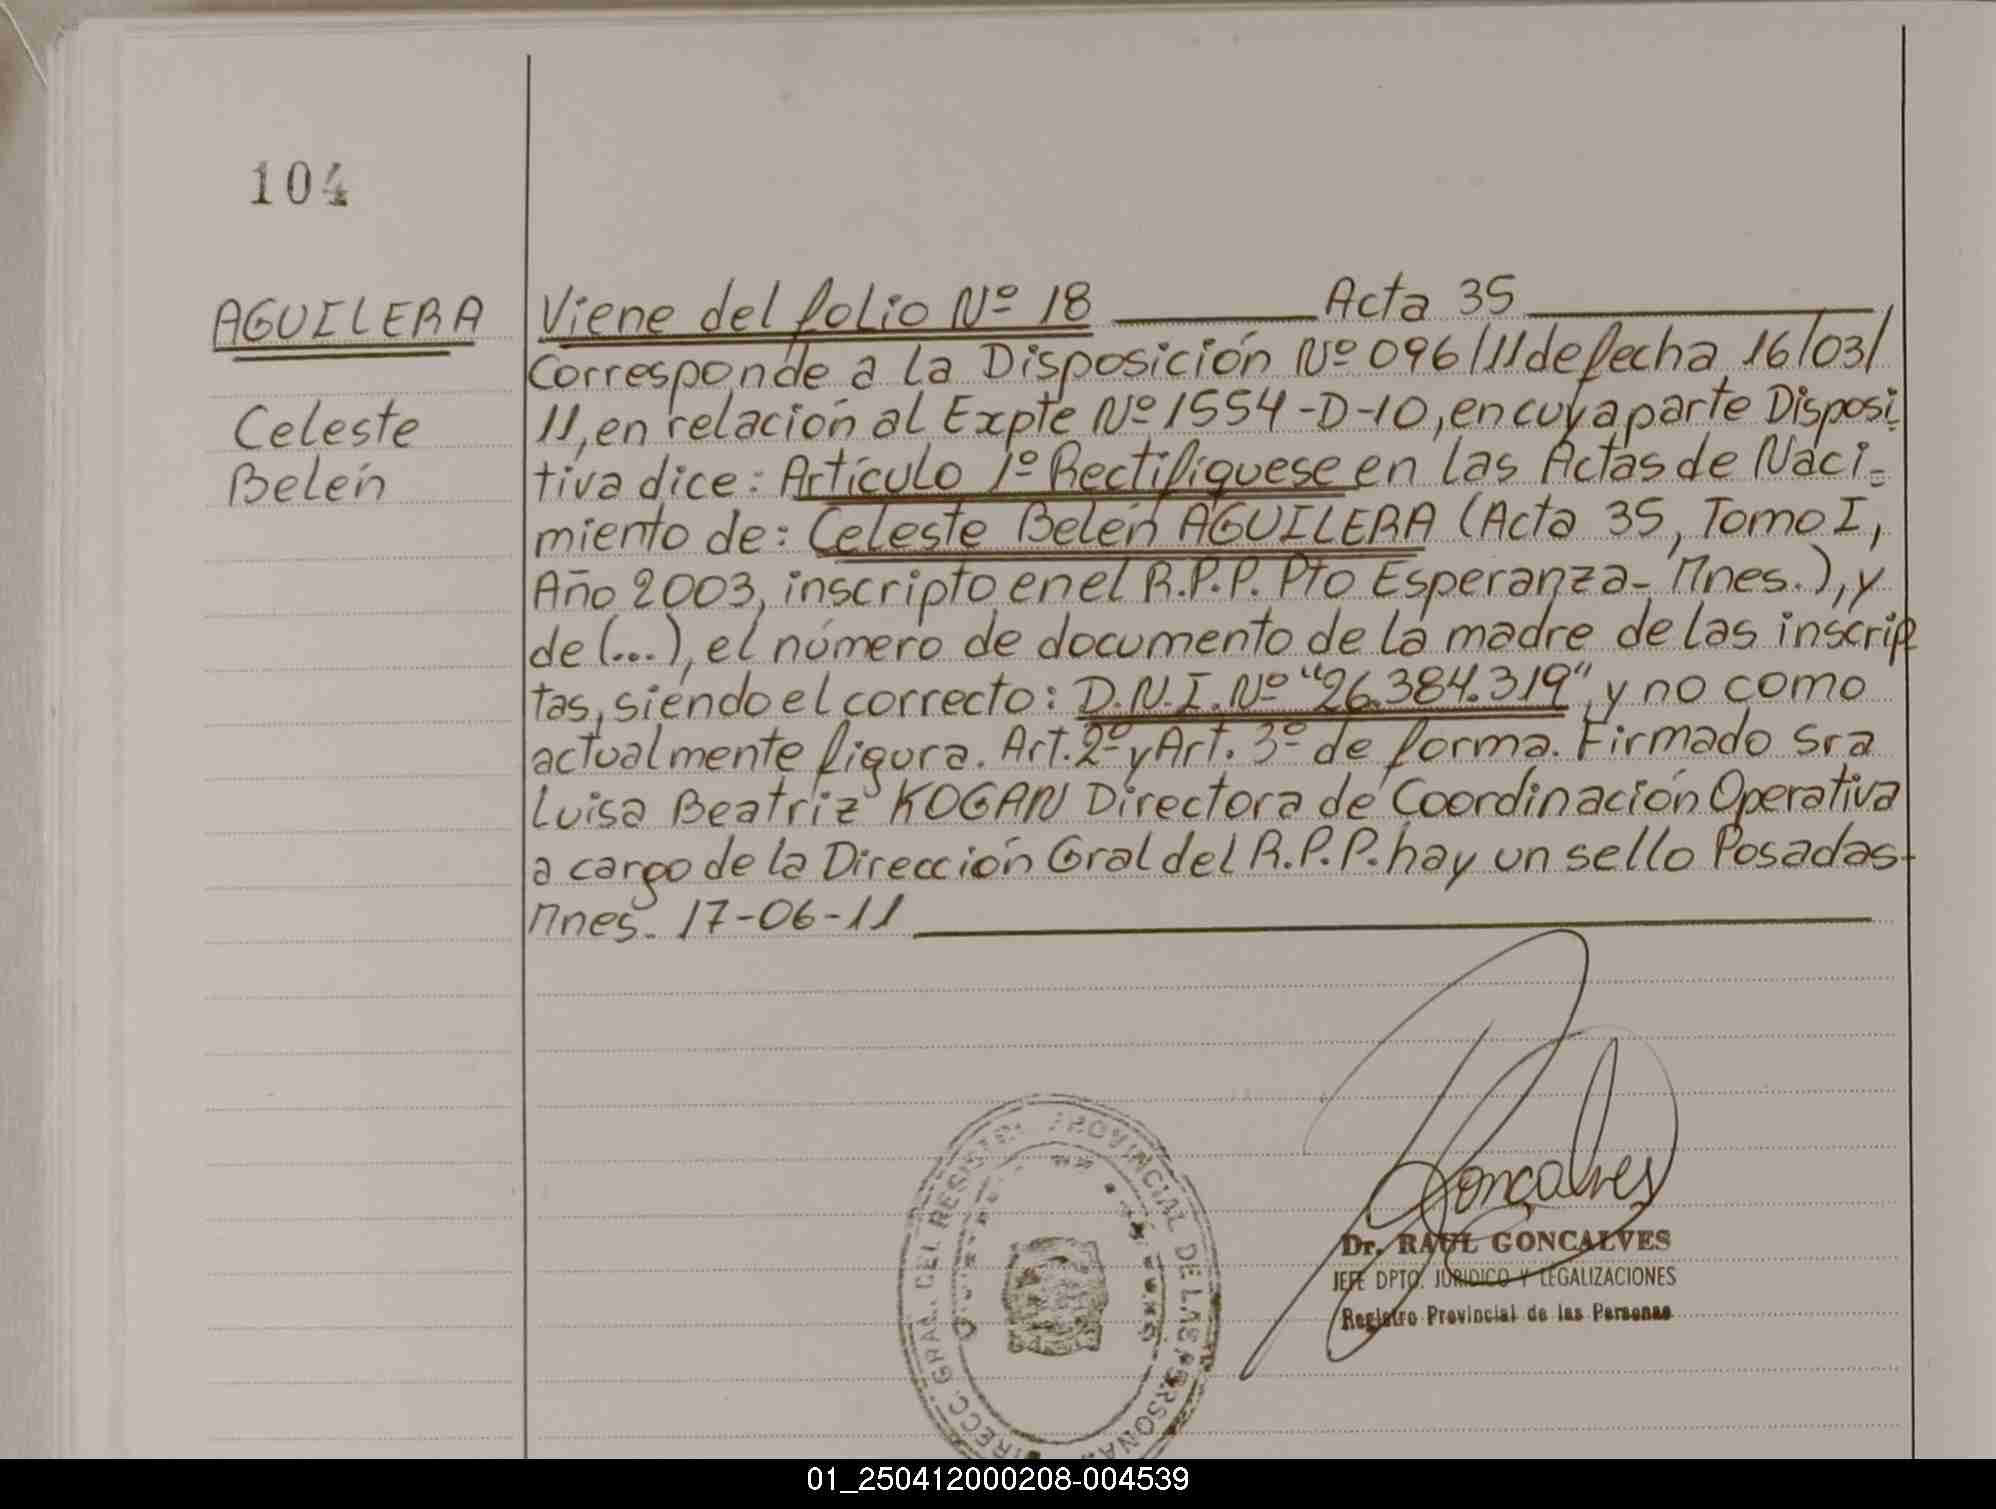 104
AGUILERA
Celeste
Belén
Viene del folio Nº 18 Acta 35
Corresponde a la Disposición Nº 096/11 de fecha 16/03/
11, en relación al Expte Nº 1554-D-10, en cuya parte Disposi
tiva dice: Artículo 1º Rectifíquese en las Actas de Naci-
miento de: Celeste Belén AGUILERA (Acta 35, Tomo I,
Año 2003, inscripto en el R.P.P. Pto Esperanza- Mnes.), y
de (...), el número de documento de la madre de las inscrip
tas, siendo el correcto: D.N.I. Nº "26.384.319" y no como
actualmente figura. Art. 2º y Art. 3º de forma. Firmado Sra
Luisa Beatriz KOGAN Directora de Coordinación Operativa
a cargo de la Dirección Gral del R.P.P. hay un sello Posadas-
Mnes. 17-06-11
DIRECC. GRAL. DEL REGISTRO PROVINCIAL DE LAS PERSONAS
Goncalves
Dr. RAUL GONCALVES
JEFE DPTO. JURIDICO Y LEGALIZACIONES
Registro Provincial de las Personas
01_250412000208-004539